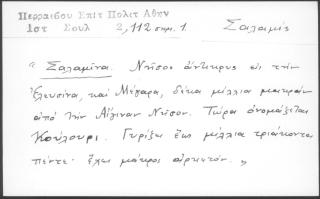 Περραιβου Επιτ Πολιτ Αθην
1στ Σουλ 2,112 σημ. 1. Σαλαμίς
"Σαλαμῖνα. Νῆσος ἀντίκρυς εἰς τὴν
Ἐλευσίνα, καὶ Μέγαρα, δέκα μίλλια μακρὰν
ἀπὸ τὴν Αἴγιναν Νῆσον. Τώρα ὀνομάζεται
Κούλουρι. Γυρίζει ἕως μίλλια τριάκοντα
πέντε· ἔχει μάκρος ἀρκετόν."